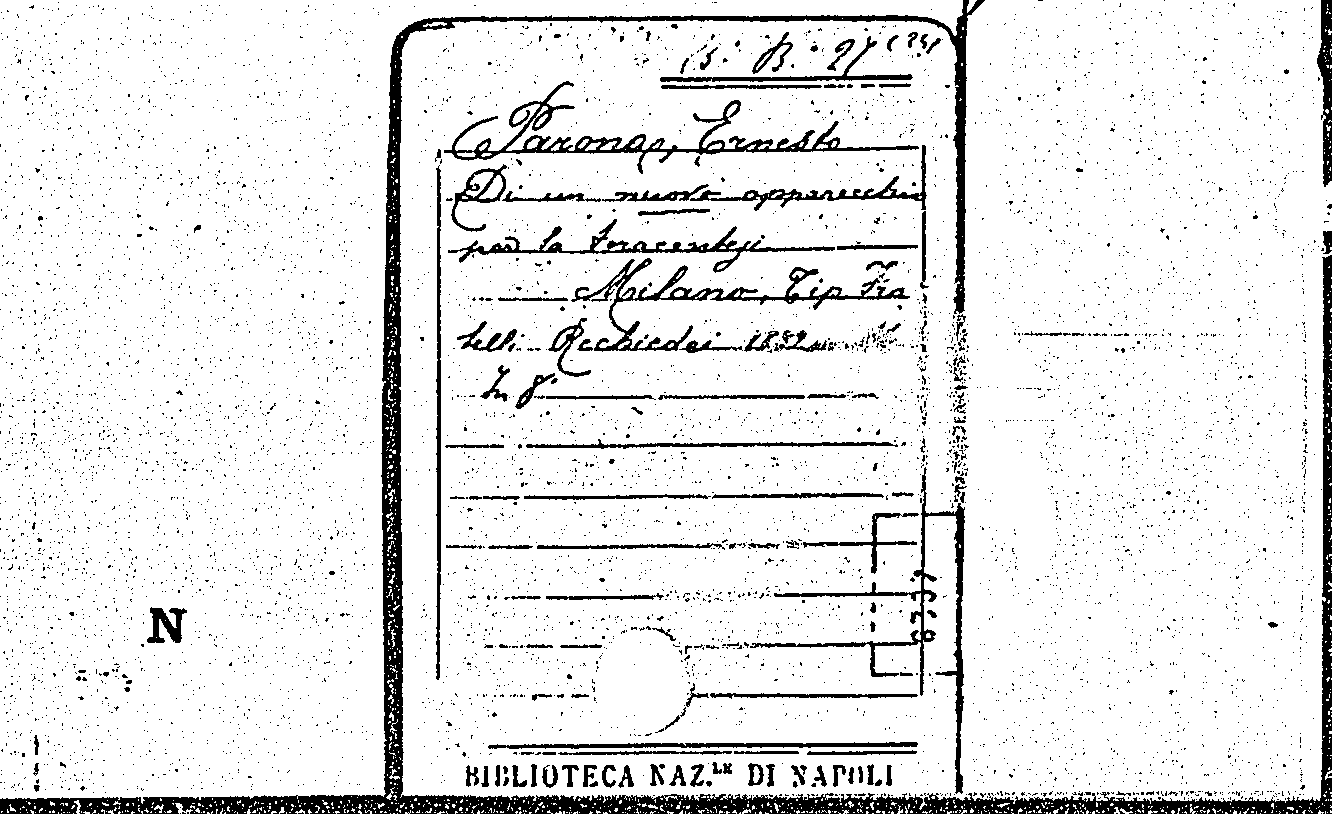 B. 27 (25)
Parona, Ernesto
Di un nuovo apparecchio
per la toracentesi
Milano, Tip Fra
telli Rechiedei 1882
In 8°
N
BIBLIOTECA NAZ.LE DI NAPOLI